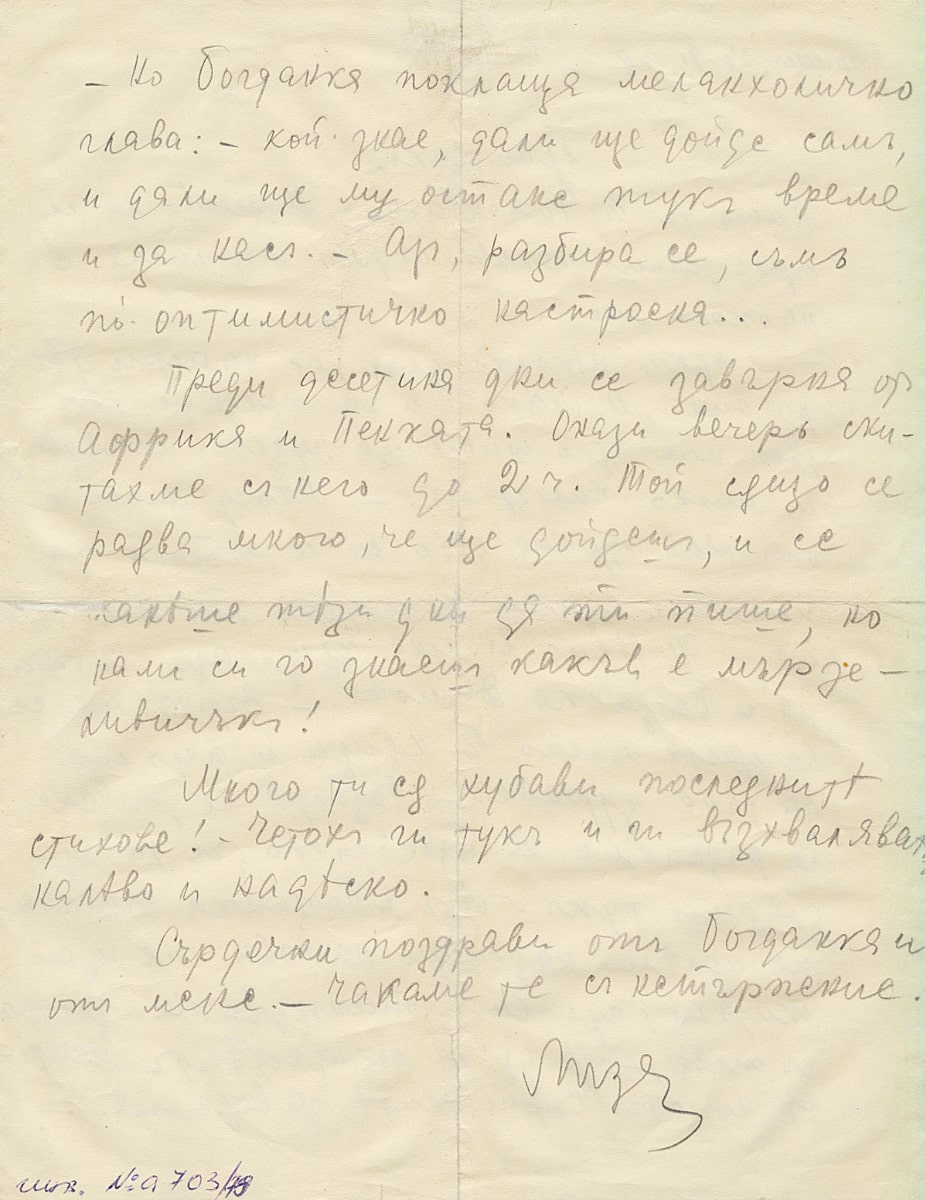 – Но Богданка поклаща меланхолично
глава: – кой знае, дали ще дойде самъ,
и дали ще му остане тукъ време
и за насъ. – Азъ, разбира се, съмъ
по-оптимистично настроена...
Преди десетина дни се завърна отъ
Африка и Пенката. Онази вечерь ски-
тахме съ него до 2 ч. Той също се
радва много, че ще дойдешъ, и се
канѣше тѣзи дни да ти пише, но
нали си го знаешъ какъв е мързе-
ливичъкъ!
Много ти сѫ хубави последнитѣ
стихове! – Четохъ ги тукъ и ги възхвалявахъ
налѣво и надѣсно.
Сърдечни поздрави отъ Богданка и
отъ мене. – Чакаме те съ нетърпение.
Лиза
инв. № а 703/79